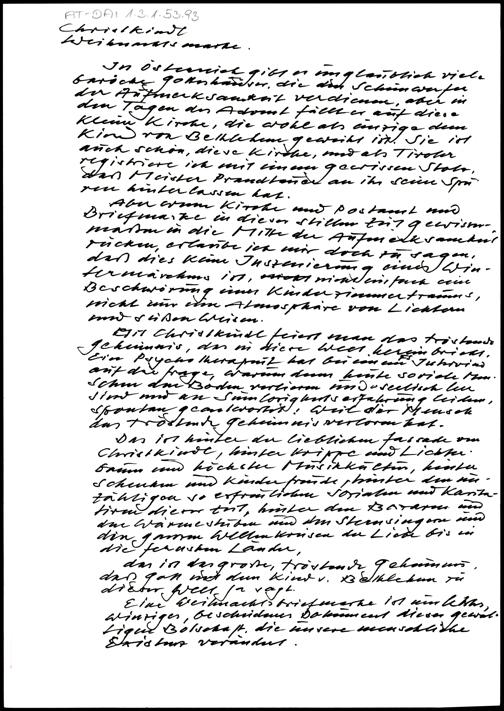 AT-DAI 1.3.1-53.93
Christkindl
Weihnachtsmarke.
In Österreich gibt es unglaublich viele
barocke Gotteshäuser, die den Scheinwerfer
der Aufmerksamkeit verdienen, aber in
den Tagen des Advent fällt er auf diese
kleine Kirche, die wohl als einzige dem
Kind von Bethlehem geweiht ist. Sie ist
auch schön, diese Kirche, und als Tiroler
registriere ich mit einem gewissen Stolz,
daß Meister Prandtauer an ihr seine Spu
ren hinterlassen hat.
Aber wenn Kirche und Postamt und
Briefmarke in dieser stillen Zeit gewisser-
maßen in die Mitte der Aufmerksamkeit
rücken, erlaube ich mir doch zu sagen,
daß dies keine Inszenierung eines Win-
termärchens ist, nicht einfach eine
Beschwörung eines Kinderzimmertraums,
nicht nur eine Atmosphäre von Lichtern
und süßen Weisen.
In Christkindl feiert man das tröstende
Geheimnis, das in diese Welt hereinbricht.
Ein Psychotherapeut hat bei einem Interview
auf die Frage, warum denn heute soviele Men-
schen den Boden verlieren und seelisch leer
sind und an Sinnlosigkeitserfahrung leiden,
spontan geantwortet: Weil der Mensch
das tröstende Geheimnis verloren hat.
Das ist hinter der lieblichen Fassade von
Christkindl, hinter Krippe und Lichter-
baum und höchster Musikkultur, hinter
Schenken und Kinderfreude, hinter den un-
zähligen so erfreulichen sozialen und karita-
tiven dieser Zeit, hinter den Basaren und
den Wärmestuben und den Sternsingern und
den ganzen Wellenkreisen der Liebe bis in
die fernsten Länder,
das ist das große, tröstende Geheimnis,
daß Gott mit dem Kind v. Bethlehem zu
dieser Welt Ja sagt.
Eine Weihnachtsbriefmarke ist ein
winziges, bescheidenes Dokument dieser gewal-
tigen Botschaft, die unsere menschliche
Existenz verändert.